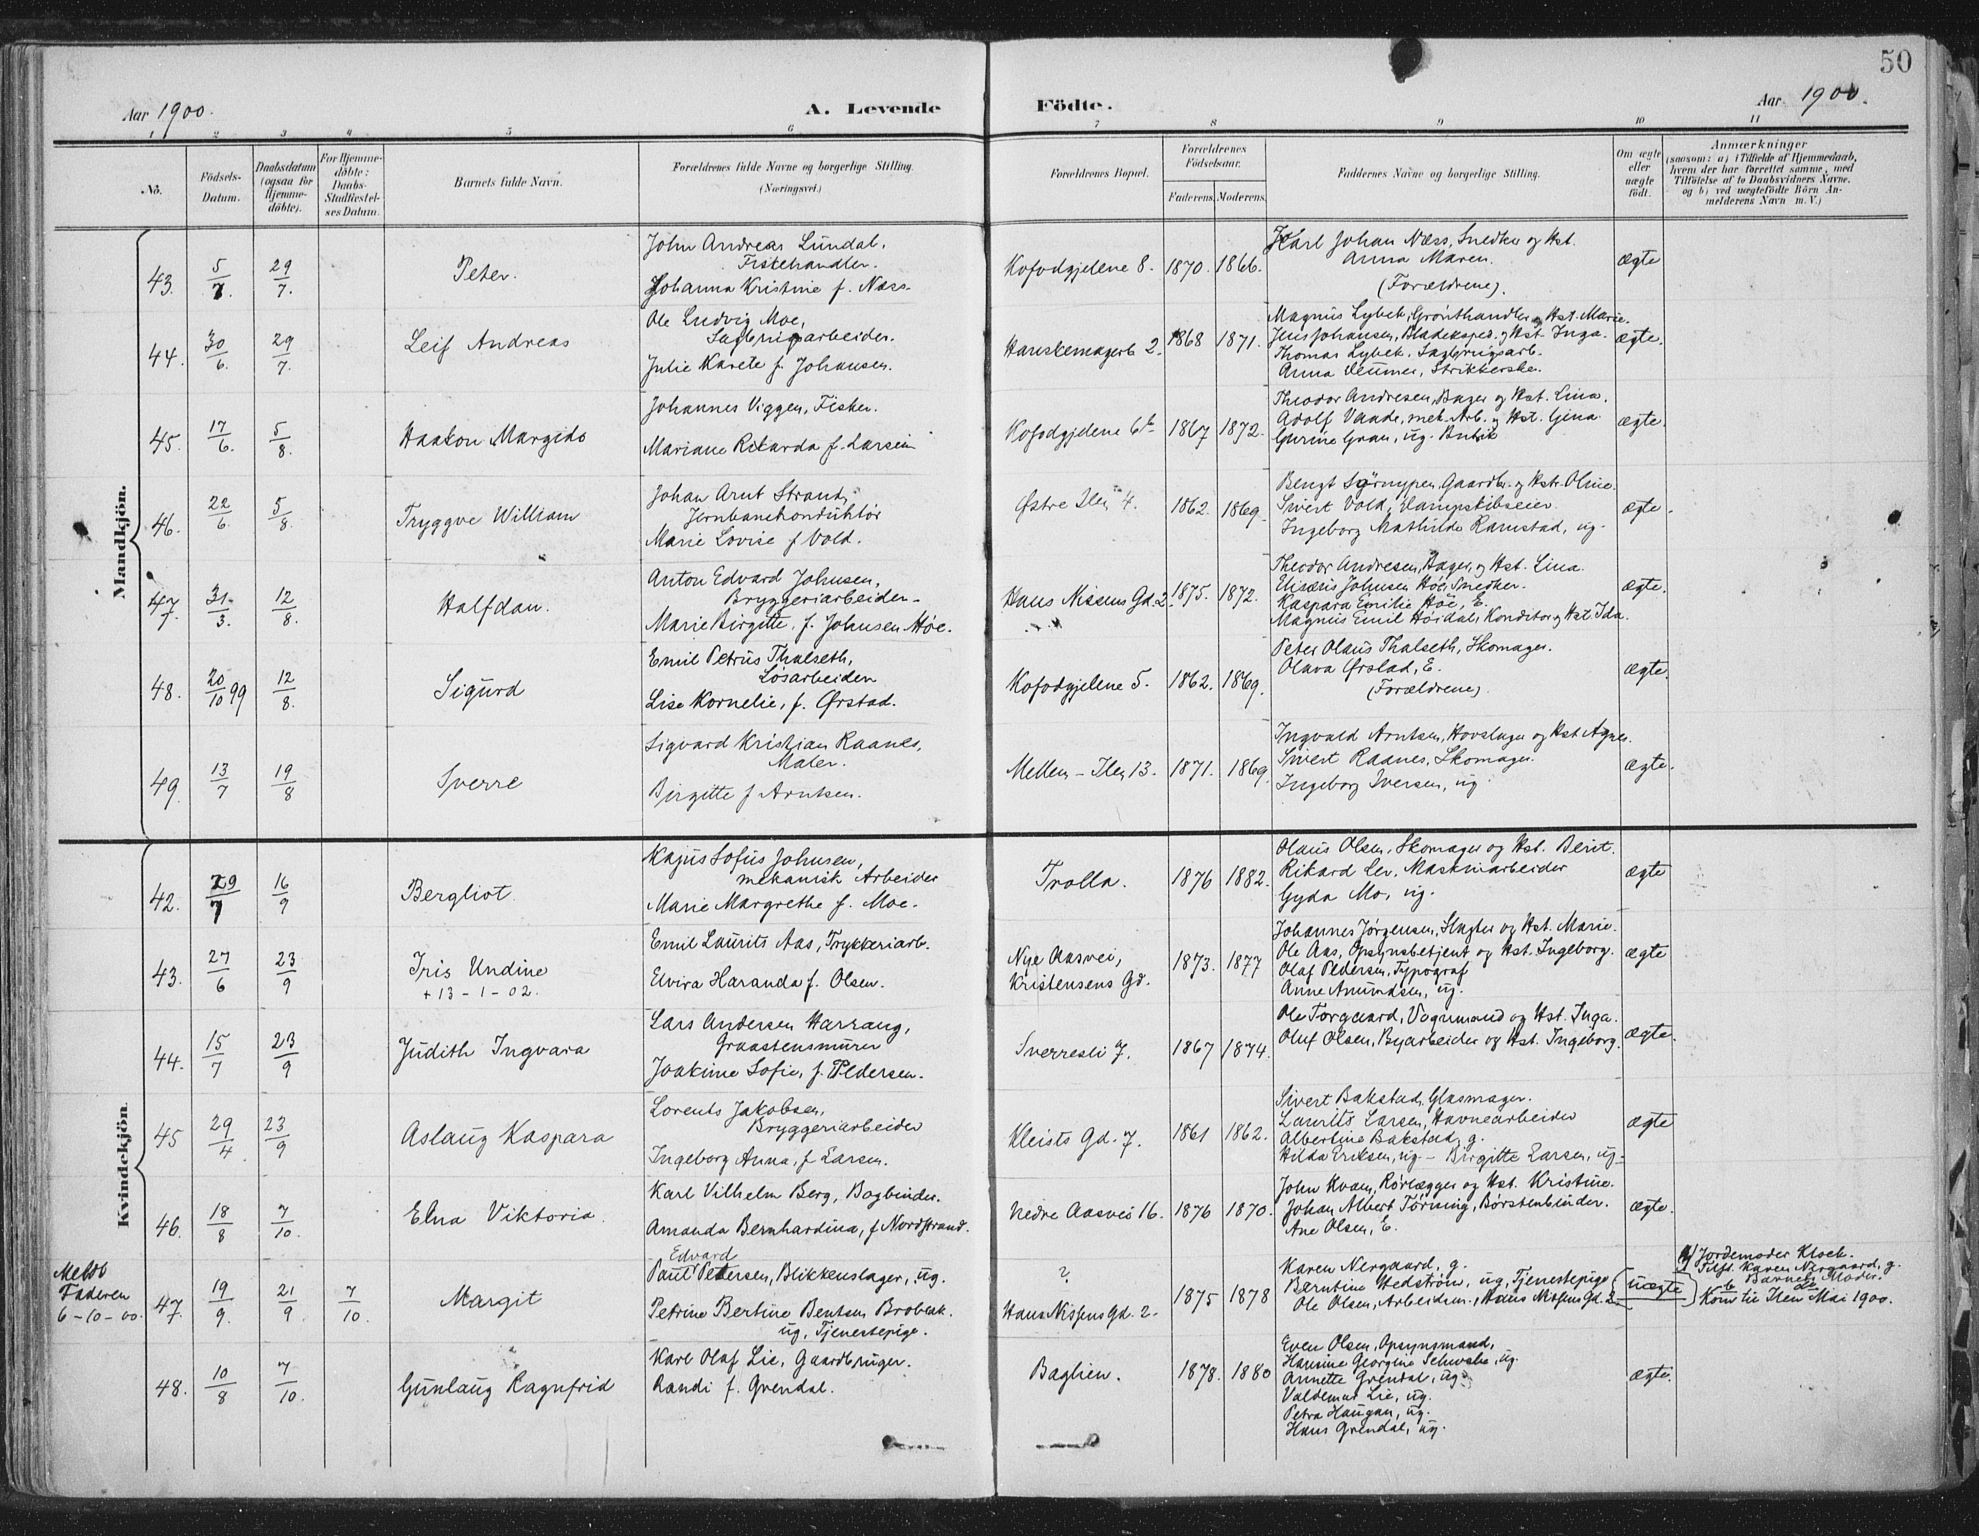 50
Aar 1900.
A. Levende
Födte.
Aar 1900.
1 2 3 4 5 6 7 8 9 10 11
No.
Födsels-Datum.
Daabsdatum (ogsaa for Hjemme-döbte).
For Hjemme-döbte: Daabs-Stadfæstel-ses Datum.
Barnets fulde Navn.
Forældrenes fulde Navne og borgerlige Stilling. (Næringsvei.)
Forældrenes Bopæl.
Forældrenes Födselsaar.
Faderens. Moderens.
Faddernes Navne og borgerlige Stilling.
Om ægte eller uægte födt.
Anmærkninger
(saasom: a) i Tilfælde af Hjemmedaab,
hvem der har forrettet samme, med
Tilföielse af to Daabsvidners Navne,
og b) ved uægtefödte Börn An-
melderens Navn m. V.)
Mandkjön.
43. 5/7. 29/7. Peter.
John Andreas Lundal,
Fiskehandler.
Johanna Kristine f. Næss
Kofodgjelene 8. 1870. 1866.
Karl Johan Næss, Snedker og Hst.
Anna Maren.
(Forældrene).
ægte
44. 30/6. 29/7. Leif Andreas
Ole Ludvig Moe,
Sagbrugsarbeider.
Julie Karete f. Johansen.
Hanskemagerb 2. 1868 1871.
Magnus Lybek, Grønthandler og Hst. Marie.
Jens Johansen, Bladeksped. og Hst. Inga.
Thomas Lybek, Sagbrugsarb.
Anna Veumer, Strikkerske.
ægte.
45. 17/6. 5/8. Haakon Margido
Johannes Viggen, Fisker.
Mariane Rikarda f. Larsen
Kofodgjelene 6b 1867 1872.
Theodor Andresen, Bager og Hst. Lina.
Adolf Vaade, mek. Arb. og Hst. Gina
Gurine Graan, ug. Butik
ægte.
46. 22/6. 5/8. Tryggve William
Johan Arnt Strand,
Jernbanekonduktør
Marie Lovise f Vold.
Østre Ilen 4. 1862. 1869.
Bengt Sørnypen, Gaardbr. og Hstr. Oline.
Sivert Vold, Dampskibseier.
Ingeborg Mathilde Ramstad, ug.
ægte.
47. 31/3. 12/8. Halfdan.
Anton Edvard Johnsen,
Bryggeriarbeider
Marie Birgitte, f. Johnsen Høe.
Hans Nissens Gd. 2. 1875. 1872.
Theodor Andresen, Bager, og Hst. Lina.
Elisæus Johnsen Høe, Snedker.
Kaspara Emilie Høe, E.
Magnus Emil Høidal, Konditor og Hst Ida.
ægte.
48. 20/10 99 12/8. Sigurd
Emil Petrus Thalseth,
Løsarbeider
Lise Kornelie, f. Ørstad.
Kofodgjelene 5. 1862. 1869.
Peter Olaus Thalseth, Skomager.
Olava Ørstad, E.
(Forældrene).
ægte.
49. 13/7 19/8 Sverre
Sigvard Kristian Raanes,
Maler.
Birgitte f Arntsen.
Mellem-Ilen 13. 1871. 1869.
Ingvald Arntsen, Hovslager og Hst Agnes.
Sivert Raanes, Skomager.
Ingeborg Iversen, ug
ægte.
Kvindekjön.
42. 29/7 16/9 Bergliot
Kajus Sofus Johnsen,
mekanisk Arbeider
Marie Margrethe f. Moe.
Trolla. 1876 1882.
Olaus Olsen, Skomager og Hst. Berit.
Rikard Lev, Maskinarbeider
Gyda Mo, ug.
ægte
43. 27/6 23/9 Iris Undine
+ 13-1-02.
Emil Laurits Aas, Trykkeriarb.
Elvira Haranda f. Olsen.
Nye Aasvei,
Kristensens Gd. 1873. 1877
Johannes Jørgensen, Slagter og Hst. Marie.
Ole Aas, Opsynsbetjent og Hst. Ingeborg.
Olaf Pedersen, Typograf
Anne Amundsen, ug.
ægte
44. 15/7 23/9 Judith Ingvara
Lars Andersen Harrang,
Graastensmurer
Joakime Sofie, f. Pedersen.
Sverresli 7. 1867 1874.
Ole Torgaard, Vognmand og Hst. Inga.
Oluf Olsen, Byarbeider og Hst. Ingeborg.
ægte.
45 29/4 23/9 Aslaug Kaspara
Lorents Jakobsen,
Bryggeriarbeider
Ingeborg Anna, f Larsen.
Kleists Gd. 7. 1861 1862.
Sivert Bakstad, Glasmager.
Laurits Larsen, Havnearbeider
Albertine Bakstad, g.
Hilda Eriksen, ug - Birgitte Larsen, ug.
ægte
46. 18/8 7/10. Elna Viktoria.
Karl Vilhelm Berg, Bogbinder.
Amanda Bernhardina, f Nordstrand.
Nedre Aasvei 16. 1876 1870.
John Kvam, Rørlægger og Hst. Kristine.
Johan Albert Tørning, Børstenbinder.
Ane Olsen, E.
ægte.
Meldt
Faderen
6-10-00.
47. 19/9. 21/9. 7/10. Margit
Edvard
Paul Petersen, Blikkenslager, ug.
Petrine Bertine Bentsen Brobak.
ug, Tjenestepige.
?
Hans Nissens Gd. 2. 1875 1878
Karen Nergaard, g.
Berntine Hedstrøm, ug, Tjenestepige
Ole Olsen, Arbeidsm., Hans Nissens Gd. 2
(uægte)
a) Jordemoder Klock.
Tilst. Karen Nergaard, g.
b Barnets Moder.
Kom til Ilen Mai 1900.
48. 10/8 7/10. Gunlaug Ragnfrid
Karl Olaf Lie, Gaardbruger.
Randi f. Grendal.
Baglien. 1878. 1880
Even Olsen, Opsynsmand,
Hansine Georgine Schwabe, ug.
Annette Grendal, ug.
Valdemar Lie, ug.
Petra Haugan, ug.
Hans Grendal, ug.
ægte.